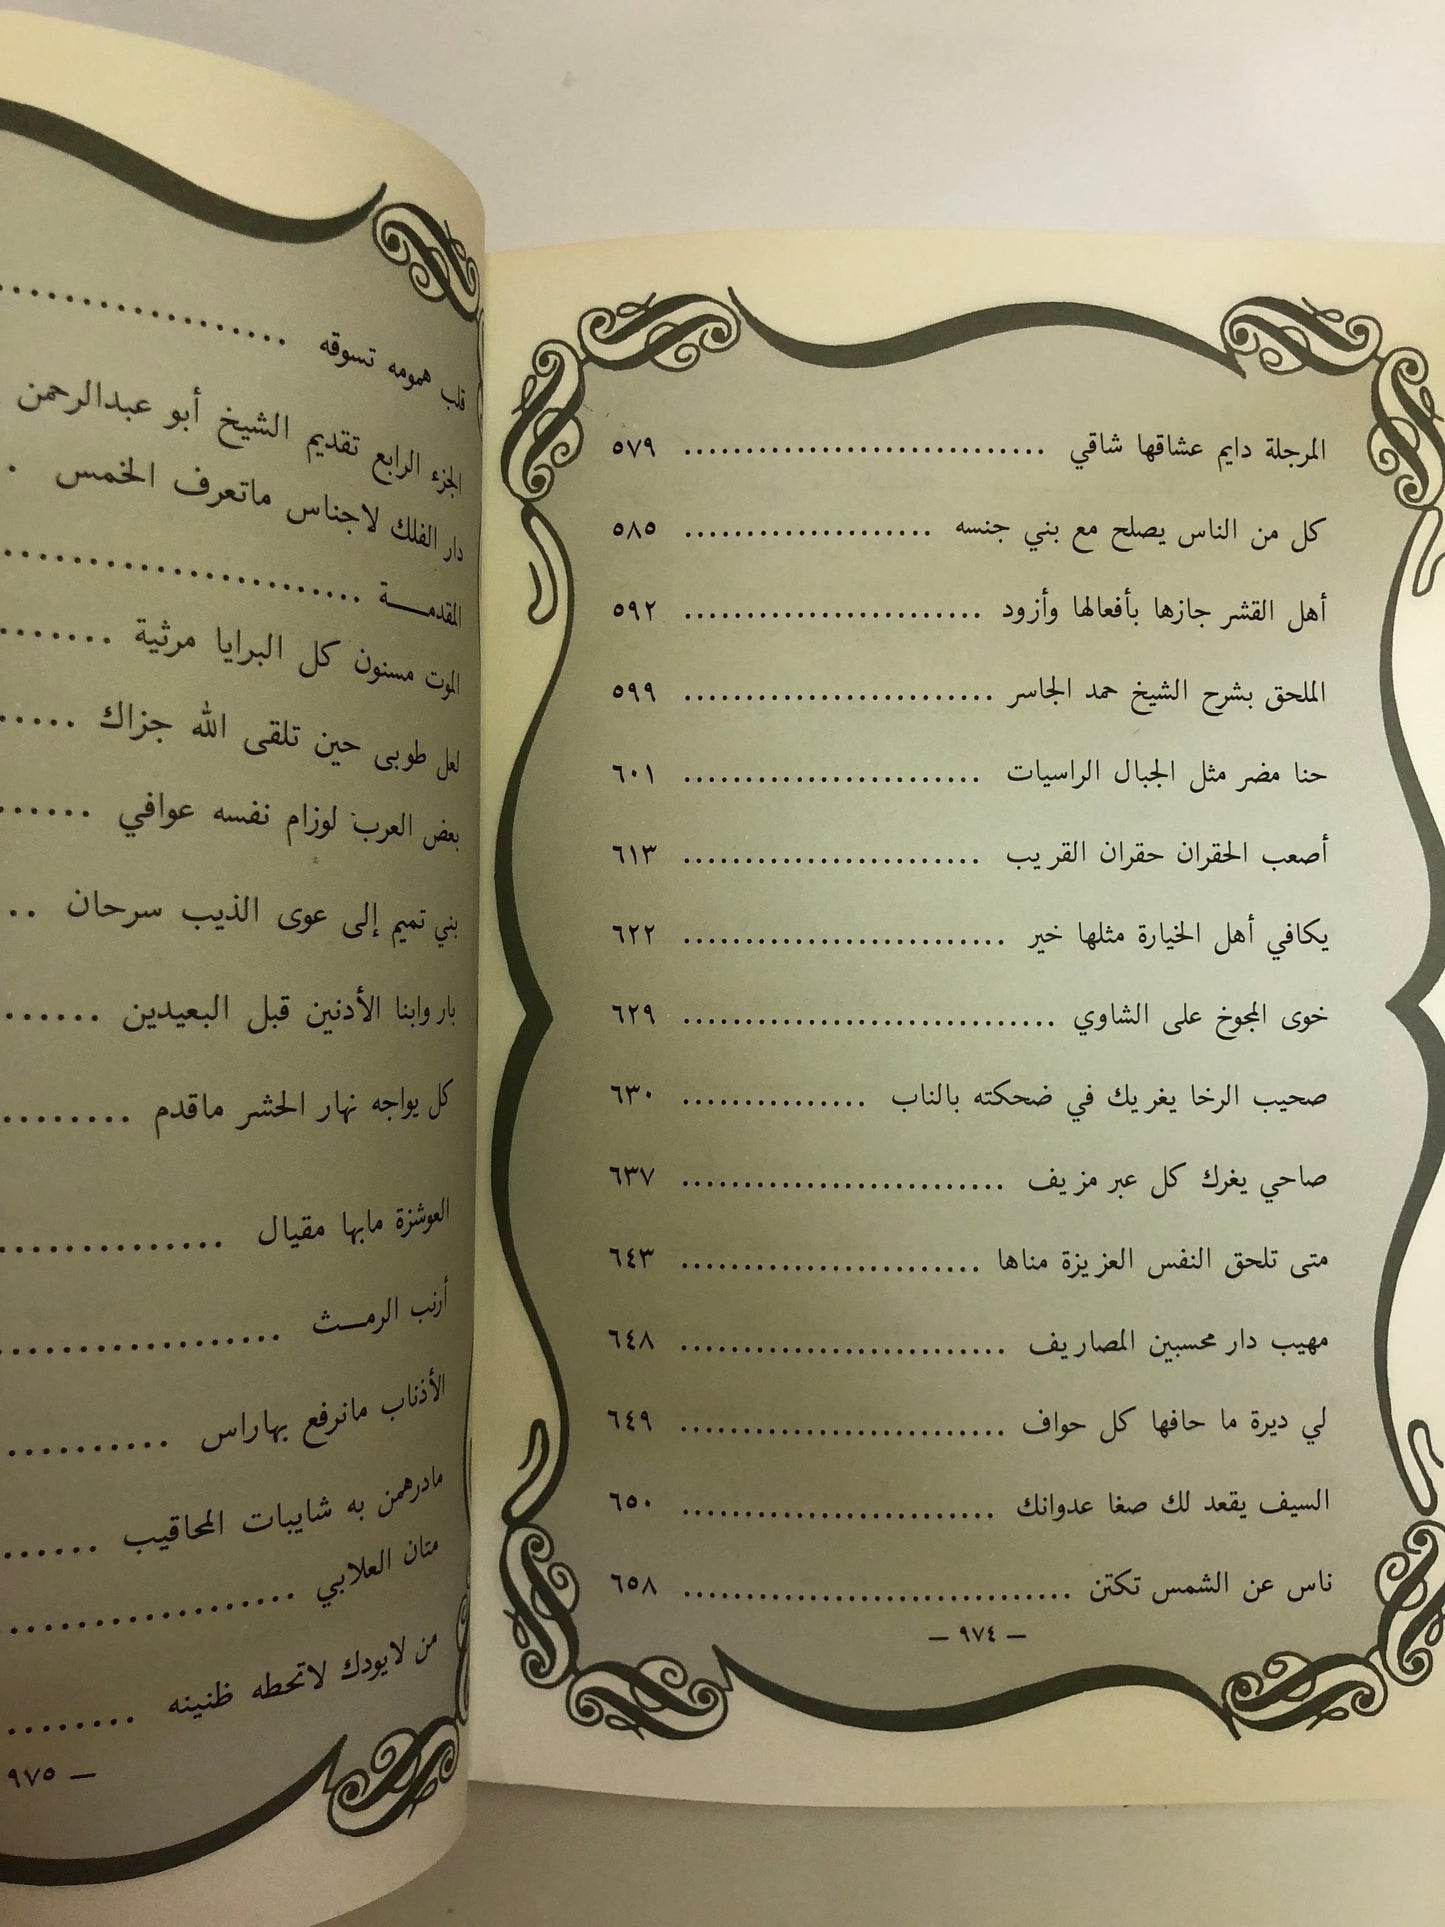 المرجلة دايم عشاقها شاقي ............................. ٥٧٩
كل من الناس يصلح مع بني جنسه .................... ٥٨٥
أهل القشر جازها بأفعالها وأزود ........................ ٥٩٢
الملحق بشرح الشيخ حمد الجاسر ......................... ٥٩٩
حنا مضر مثل الجبال الراسيات ........................ ٦٠١
أصعب الحقران حقران القريب ........................ ٦١٣
يكافي أهل الخيارة مثلها خير .......................... ٦٢٢
خوى المجوخ على الشاوي .............................. ٦٢٩
صحيب الرخا يغريك في ضحكته بالناب ............... ٦٣٠
صاحي يغرك كل عبر مزيف .......................... ٦٣٧
متى تلحق النفس العزيزة مناها ........................ ٦٤٣
مهيب دار محسبين المصاريف .......................... ٦٤٨
لي ديرة ما حافها كل حواف .......................... ٦٤٩
السيف يقعد لك صغا عدوانك ......................... ٦٥٠
ناس عن الشمس تكتن ............................... ٦٥٨
— ٩٧٤ —
قلب همومه تسوقه .......................
الجزء الرابع تقديم الشيخ أبو عبدالرحمن
دار الفلك لاجناس ماتعرف الخمس .
المقدمـــة ............................
الموت مسنون كل البرايا مرثية .......
لعل طوبى حين تلقى الله جزاك .....
بعض العرب لوزام نفسه عوافي .......
بني تميم إلى عوى الذيب سرحان ..
بار وابنا الأدنين قبل البعيدين ......
كل يواجه نهار الحشر ماقدم ........
العوشزة مابها مقيال ...............
أرنب الرمـــث ....................
الأذناب مانرفع بهاراس ...........
مادرهمن به شايبات المحاقيب ......
متان العلابي .....................
من لايودك لاتحطه ظنينه ........
— ٩٧٥